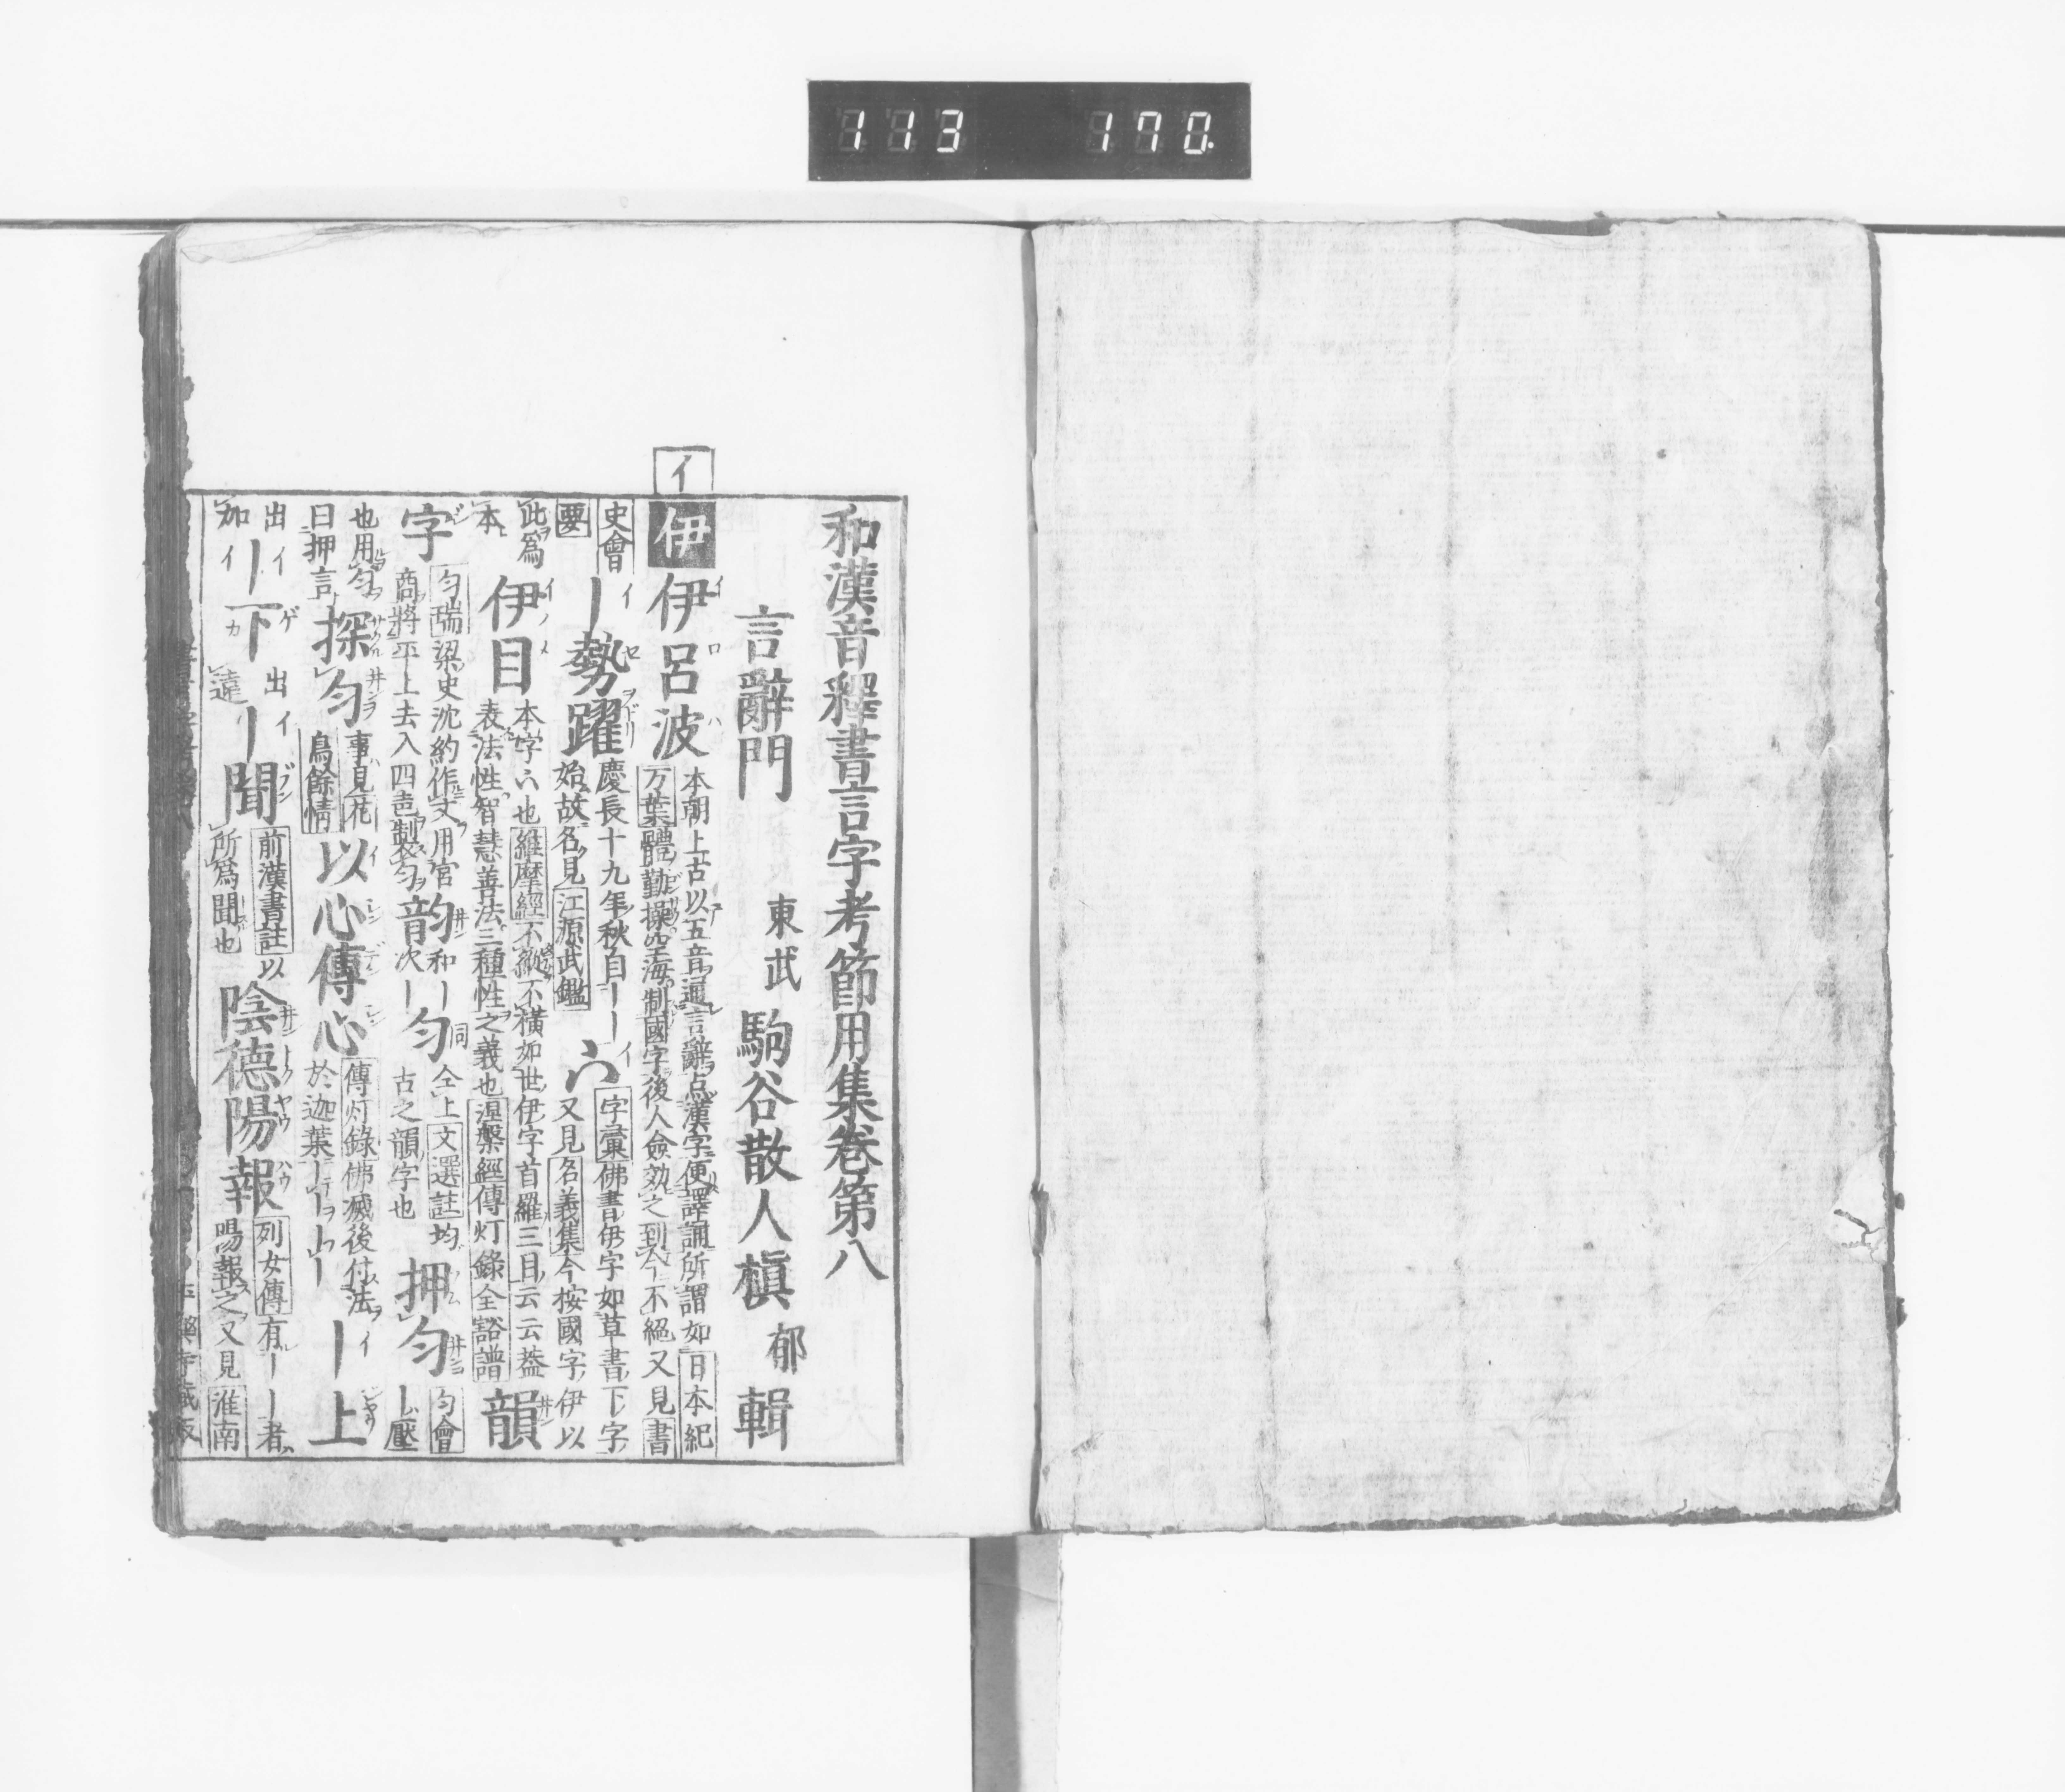 113 170
和漢音釋書言字考節用集卷第八
言辭門
東武 駒谷散人 槙 郁 輯
イ
伊 伊呂波 本朝上古以五音通言辭点漢字便譯誦所謂如日本紀
万葉體勤操空海制國字後人僉効之到今不絕又見書
史會 ｜勢躍 慶長十九年秋自｜｜
要 始故名見江源武鑑
字彙佛書伊字如草書下字
又見名義集今按國字伊以
此爲 伊目 本字六也維摩經不縱不橫如世伊字首羅三目云云蓋
本 表法性智慧善法三種性之義也涅槃經傳灯錄全谿譜 韻
字 匀瑞梁史沈約作文用宮
商將平上去入四声制匀
韵 和｜ 次｜ 匀 同 仝上文選註均
古之韻字也
押匀 匀會
｜壓
也用匀
曰押言 探匀 事見花
鳥餘情 以心傳心 傳灯錄佛滅後付法
於迦葉｜｜ ｜上
出イ
加イ ｜下 出イ
遠 ｜聞 前漢書註以
所爲聞也 陰德陽報 列女傳有｜｜者
陽報之又見淮南